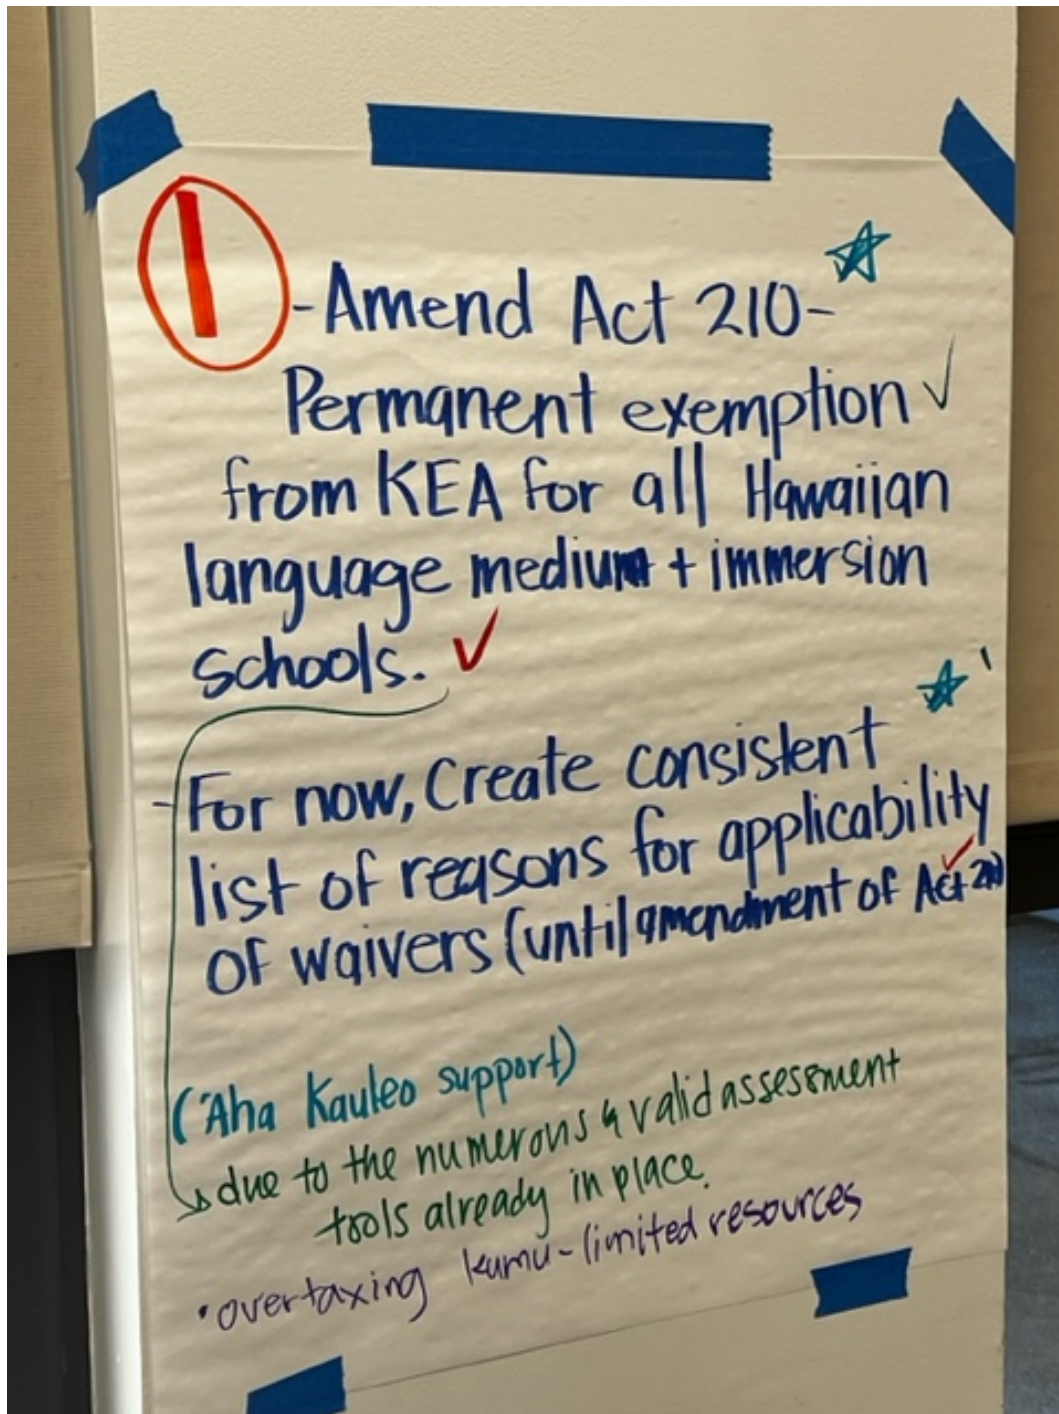 1
-Amend Act 210-
Permanent exemption
from KEA for all Hawaiian
language medium + immersion
schools.
-For now, Create consistent
list of reasons for applicability
of waivers (until amendment of Act 210)
('Aha Kauleo support)
due to the numerous & valid assessment
tools already in place.
•overtaxing kumu-limited resources